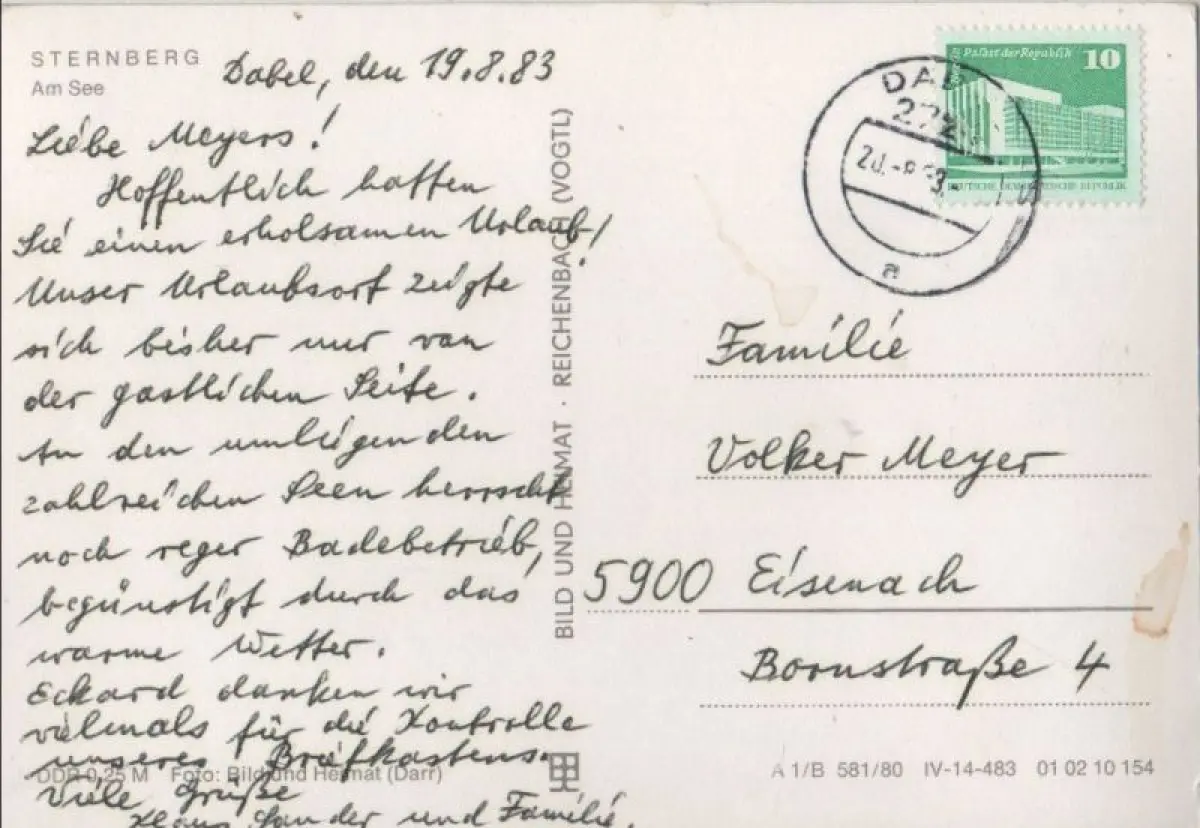 STERNBERG
Am See
Dabel, den 19.8.83
Liebe Meyers!
Hoffentlich hatten
Sie einen erholsamen Urlaub!
Unser Urlaubsort zeigte
sich bisher nur von
der gastlichen Seite.
An den umliegenden
zahlreichen Seen herrscht
noch reger Badebetrieb,
begünstigt durch das
warme Wetter.
Eckard danken wir
vielmals für die Kontrolle
unseres Briefkastens.
Viele Grüße
Klaus Sander und Familie.
DDR 0,25 M Foto: Bild und Heimat (Darr)
BILD UND HEIMAT · REICHENBACH (VOGTL)
Palast der Republik 10
DEUTSCHE DEMOKRATISCHE REPUBLIK
20.-8.83
a
Familie
Volker Meyer
5900 Eisenach
Bornstraße 4
A 1/B 581/80 IV-14-483 01 02 10 154